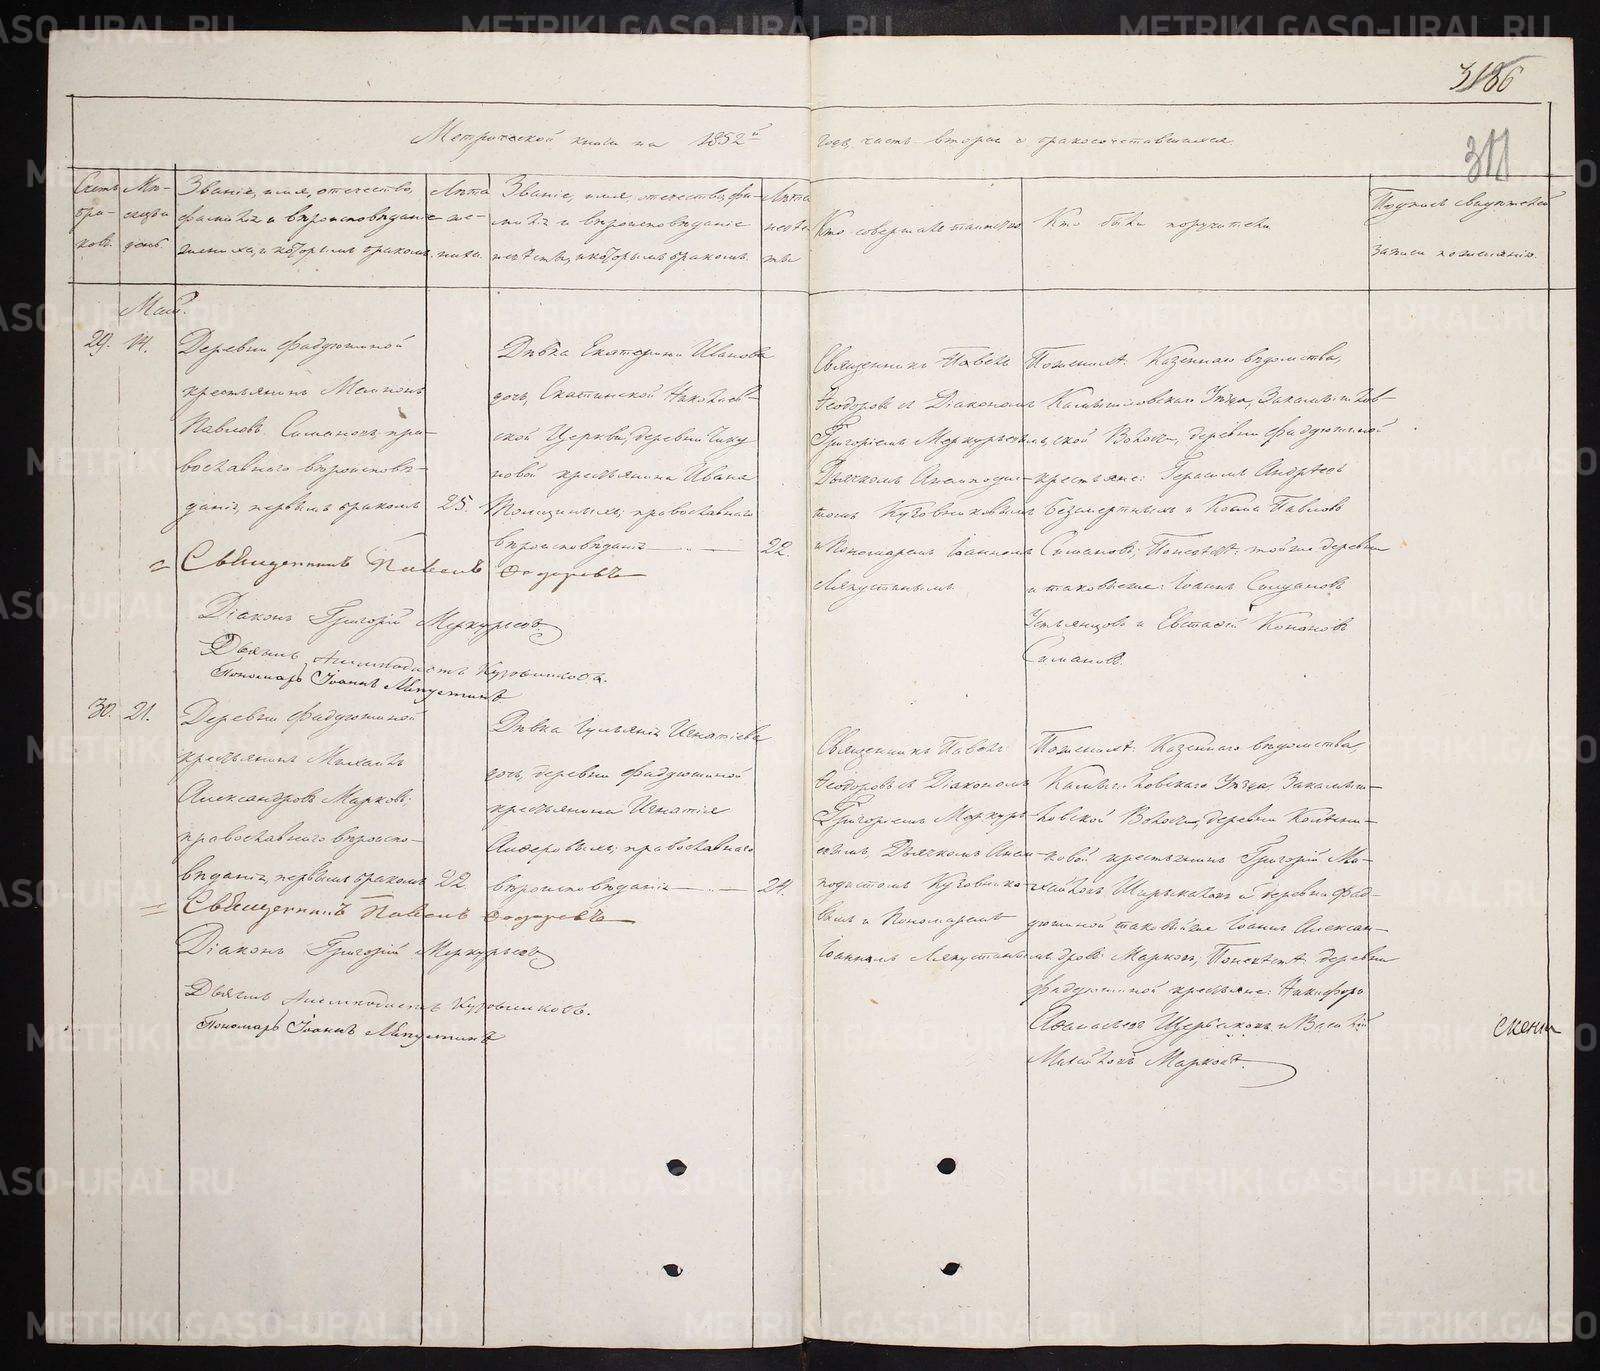 3186
311
Метрической книги на 1852й
годъ, часть вторая о бракосочетавшихся
Счетъ браковъ.
Мѣсяцъ и день.
Званіе, имя, отечество,
фамилія и вѣроисповѣданіе
жениха, и которымъ бракомъ.
Лѣта жениха.
Званіе, имя, отечество, фамилія и вѣроисповѣданіе
невѣсты, и которымъ бракомъ.
Лѣта невѣсты
Кто совершалъ таинство
Кто были поручители.
Подпись свидѣтелей
записи по желанію.
Май.
29. 14.
Деревни Фадюшиной
крестьянинъ
Павловъ Симановъ, пра-
вославнаго вѣроисповѣ-
данія, первымъ бракомъ 25.
Дѣвка Екатерина Иванова
дочь, Скатинской Николаев-
ской Церкви, деревни Чику
новой крестьянина Ивана
православнаго
вѣроисповѣданія 22.
Священникъ Павелъ
Ѳеодоровъ съ Діакономъ
Григоріемъ Меркурьевымъ,
Дьячкомъ Анемподис-
томъ Кузовниковымъ
и Пономаремъ Іоанномъ
Ляпустинымъ
По женихѣ: Казеннаго вѣдомства,
Камышловскаго Уѣзда, Закамышлов-
ской Волости, деревни Фадюшиной
крестьяне: Герасимъ Андреевъ
Безмертныхъ и Косма Павловъ
Симановъ; По невѣстѣ: той же деревни
и таковые же: Іоаннъ
Устьянцовъ и Евстафій Кононовъ
Симановъ.
Священникъ Павелъ Ѳеодоровъ
Діаконъ Григорій Меркурьевъ
Дьячекъ Анемподистъ Кузовниковъ.
Пономарь Іоаннъ Ляпустинъ
30. 21.
Деревни Фадюшиной
крестьянинъ Михаилъ
Александровъ Марковъ;
православнаго вѣроиспо-
вѣданія, первымъ бракомъ 22.
Дѣвка Іуліанія Игнатіева
дочь, деревни Фадюшиной
крестьянина Игнатія
православнаго
вѣроисповѣданія 24.
Священникъ Павелъ
Ѳеодоровъ съ Діакономъ
Григоріемъ Меркурь-
евымъ, Дьячкомъ Анем-
подистомъ Кузовнико-
вымъ и Пономаремъ
Іоанномъ Ляпустинымъ
По женихѣ: Казеннаго вѣдомства,
Камышловскаго Уѣзда, Закамыш-
ловской Волости, деревни
ковой крестьянинъ Григорій Ми-
хайловъ и деревни Фад-
юшиной таковый же Іоаннъ Алексан-
дровъ Марковъ, По невѣстѣ: деревни
Фадюшиной крестьяне: Никифоръ
Аѳанасьевъ Щербаковъ и Василій
Михайловъ Марковъ.
Священникъ Павелъ Ѳеодоровъ
Діаконъ Григорій Меркурьевъ
Дьячекъ Анемподистъ Кузовниковъ.
Пономарь Іоаннъ Ляпустинъ
METRIKI.GASO-URAL.RU